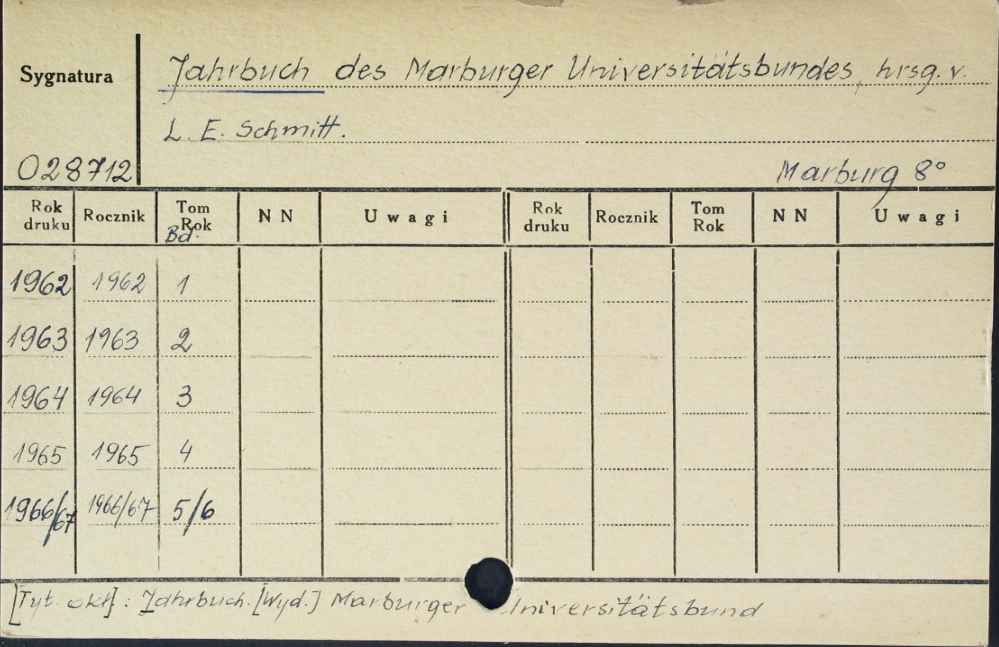 Sygnatura
Jahrbuch des Marburger Universitätsbundes, hrsg. v.
L. E. Schmitt.
028712
Marburg 8°
Rok druku Rocznik Tom Rok Bd. NN Uwagi Rok druku Rocznik Tom Rok NN Uwagi
1962 1962 1
1963 1963 2
1964 1964 3
1965 1965 4
1966/67 1966/67 5/6
[Tyt. okł] : Jahrbuch. [Wyd.] Marburger Universitätsbund